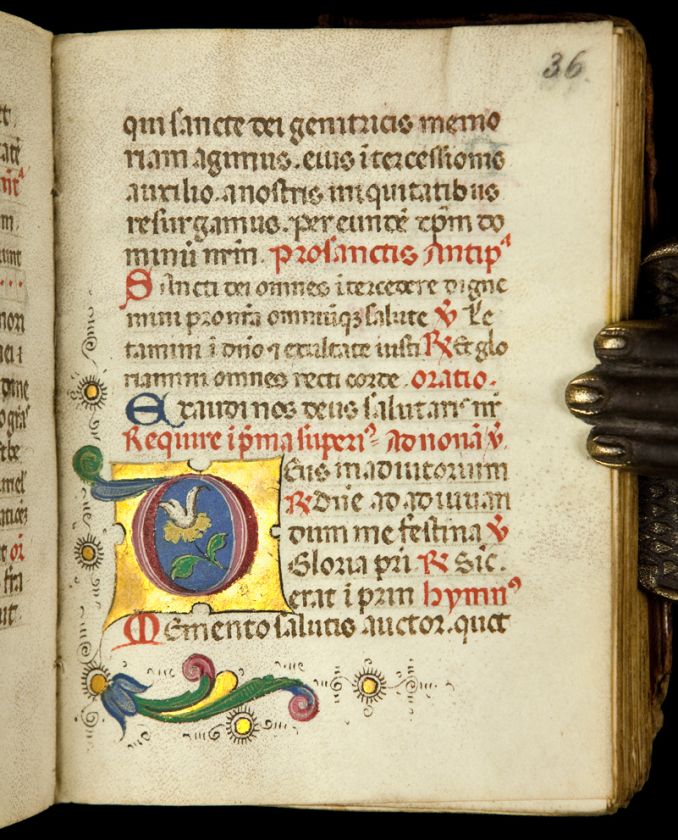 36
qui sancte dei genitricis memo
riam agimus. eius itercessionis
auxilio. a nostris iniquitatibus
resurgamus. per eundē xp̄m do
minū nr̄m. pro sanctis Antipª
Sancti dei omnes itercedere digne
mini pro nr̄a omniūq3 salute ℣ Le
tamini ī dn̄o ⁊ exultate iusti ℟ Et glo
riamini omnes recti corde. oratio.
Exaudi nos deus salutaris nr̄
Require ī p̄ma superi⁹ Ad nonā ℣.
Deus in adiutorium
℟ Dn̄e ad adiuuan
dum me festina ℣
Gloria pr̄i ℟ Sic.
erat ī prin hymn⁹
Memento salutis auctor. quet